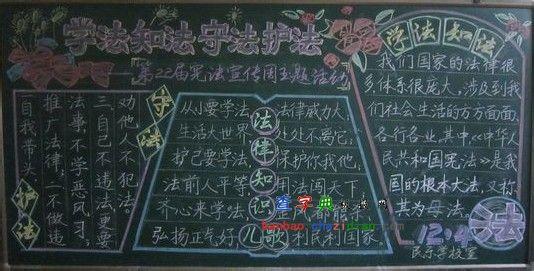 学法知法 守法护法
第22届宪法宣传周主题活动
守法
护法
自我带头
推广法律，二不做违
法事，不学恶风习
三自己不违法更要
劝他人不犯法。
法律知识儿歌
从小要学法 法律威力大，
生活大世界 处处不离它，
护己要学法 保护你我他，
法前人平等 用法闯天下，
齐心来学法，
弘扬正气好 利民利国家
学法知法
我们国家的法律很
多，体系很庞大，涉及到我
们社会生活的方方面面，
各行各业，其中，《中华人
民共和国宪法》是我
国的根本大法，又称
其为母法。
12.4
法
查字典